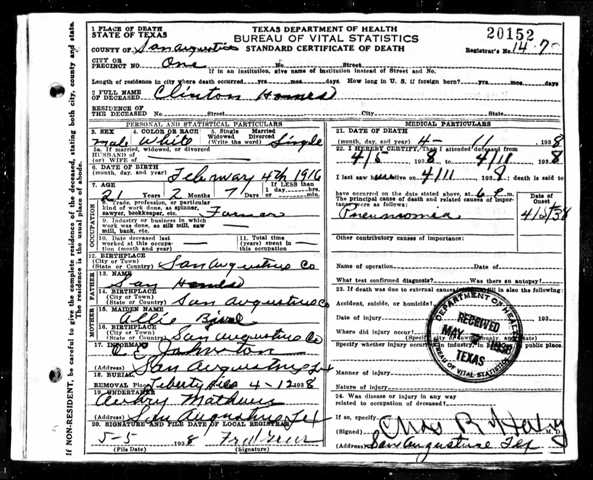 TEXAS DEPARTMENT OF HEALTH
BUREAU OF VITAL STATISTICS
STANDARD CERTIFICATE OF DEATH
20152
Registrar's No. 14-7
1 PLACE OF DEATH
STATE OF TEXAS
COUNTY OF San Augustine
CITY OR
PRECINCT NO. One No. Street
If in an institution, give name of institution instead of Street and No.
Length of residence in city where death occurred yrs. mos. days. How long in U. S. if foreign born? yrs. mos. days
2 FULL NAME
OF DECEASED Clinton
RESIDENCE OF
THE DECEASED No. Street City State
PERSONAL AND STATISTICAL PARTICULARS
3. SEX 4. COLOR OR RACE 5. Single Married
Widowed Divorced
Male White (Write the word) Single
5a. If married, widowed, or divorced
HUSBAND of
(or) WIFE of
6. DATE OF BIRTH
(month, day, and year) February 4th 1916
7. AGE If LESS than
1 day, hrs.
min.
21 Years 2 Months 7 Days
OCCUPATION
8. Trade, profession, or particular
kind of work done, as spinner,
sawyer, bookkeeper, etc. Farmer
9. Industry or business in which
work was done, as silk mill, saw
mill, bank, etc.
10. Date deceased last
worked at this occupa-
tion (month and year)
11. Total time (years)
spent in this
occupation
12. BIRTHPLACE
(City or Town)
(State or Country) San Augustine Co
FATHER
13. NAME
14. BIRTHPLACE
(City or Town)
(State or Country) San Augustine Co
MOTHER
15. MAIDEN NAME
Allie
16. BIRTHPLACE
(City or Town)
(State or Country) San Augustine Co
17. INFORMANT Johnston
(Address) San Augustine Tex
18. BURIAL
REMOVAL Place Liberty Hill 4-12 1938
19. UNDERTAKER
Mathews
(Address) San Augustine, Tex
20. SIGNATURE AND FILE DATE OF LOCAL REGISTRAR
5-5 1938 Fred Greer
(File Date) (Signature)
MEDICAL PARTICULARS
21. DATE OF DEATH
(month, day, and year) 4- 11 1938
22. I HEREBY CERTIFY, That I attended deceased from
4/5 1938 to 4/11 1938
I last saw alive on 4/11 1938; death is said to
have occurred on the date stated above, at 6 P. m.
The principal cause of death and related causes of impor-
tance were as follows:
Date of
Onset
Pneumonia
Other contributory causes of importance:
Name of operation
What test confirmed diagnosis? Was there an autopsy?
23. If death was due to external causes (violence) fill in also the following:
Accident, suicide, or homicide?
Date of injury 193
Where did injury occur?
(Specify city or town, county, and State)
Specify whether injury occurred in industry, in home, or in public place.
Manner of injury
Nature of injury
24. Was disease or injury in any way
related to occupation of deceased?
If so, specify
(Signed) Chas R M. D.
(Address) San Augustine Tex
DEPARTMENT OF HEALTH
RECEIVED
MAY 1938
TEXAS
BUREAU OF VITAL STATISTICS
If NON-RESIDENT, be careful to give the complete residence of the deceased, stating both city, county and state.
The residence is the usual place of abode.